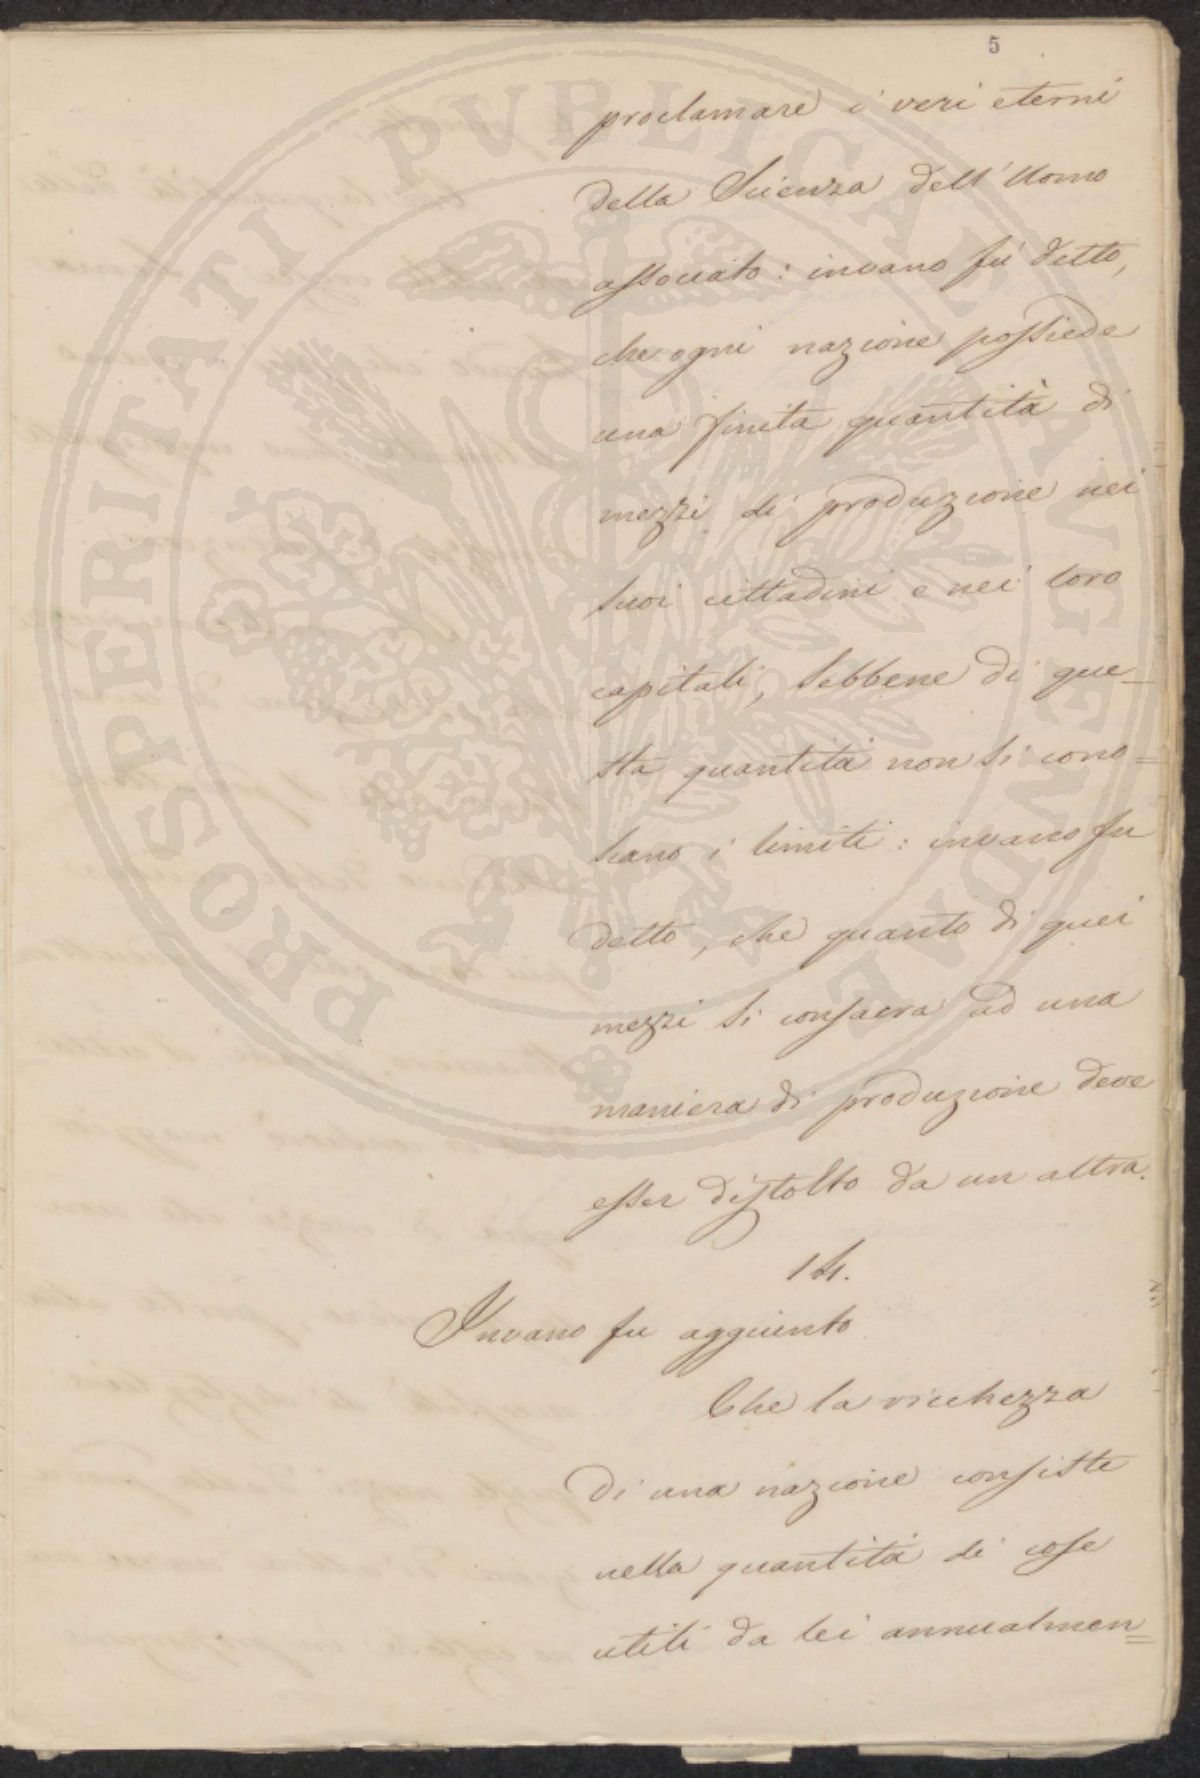 5
proclamare i veri eterni
della Scienza dell'Uomo
associato: invano fu detto,
che ogni nazione possiede
una finita quantità di
mezzi di produzione nei
suoi cittadini e nei loro
capitali, sebbene di que_
sta quantità non si cono=
scano i limiti: invano fu
detto, che quanto di quei
mezzi si consacra ad una
maniera di produzione deve
esser distolto da un altra.
14.
Invano fu aggiunto
Che la ricchezza
di una nazione consiste
nella quantità di cose
utili da lei annualmen=
PROSPERITATI PVBLICAE AVGENDAE